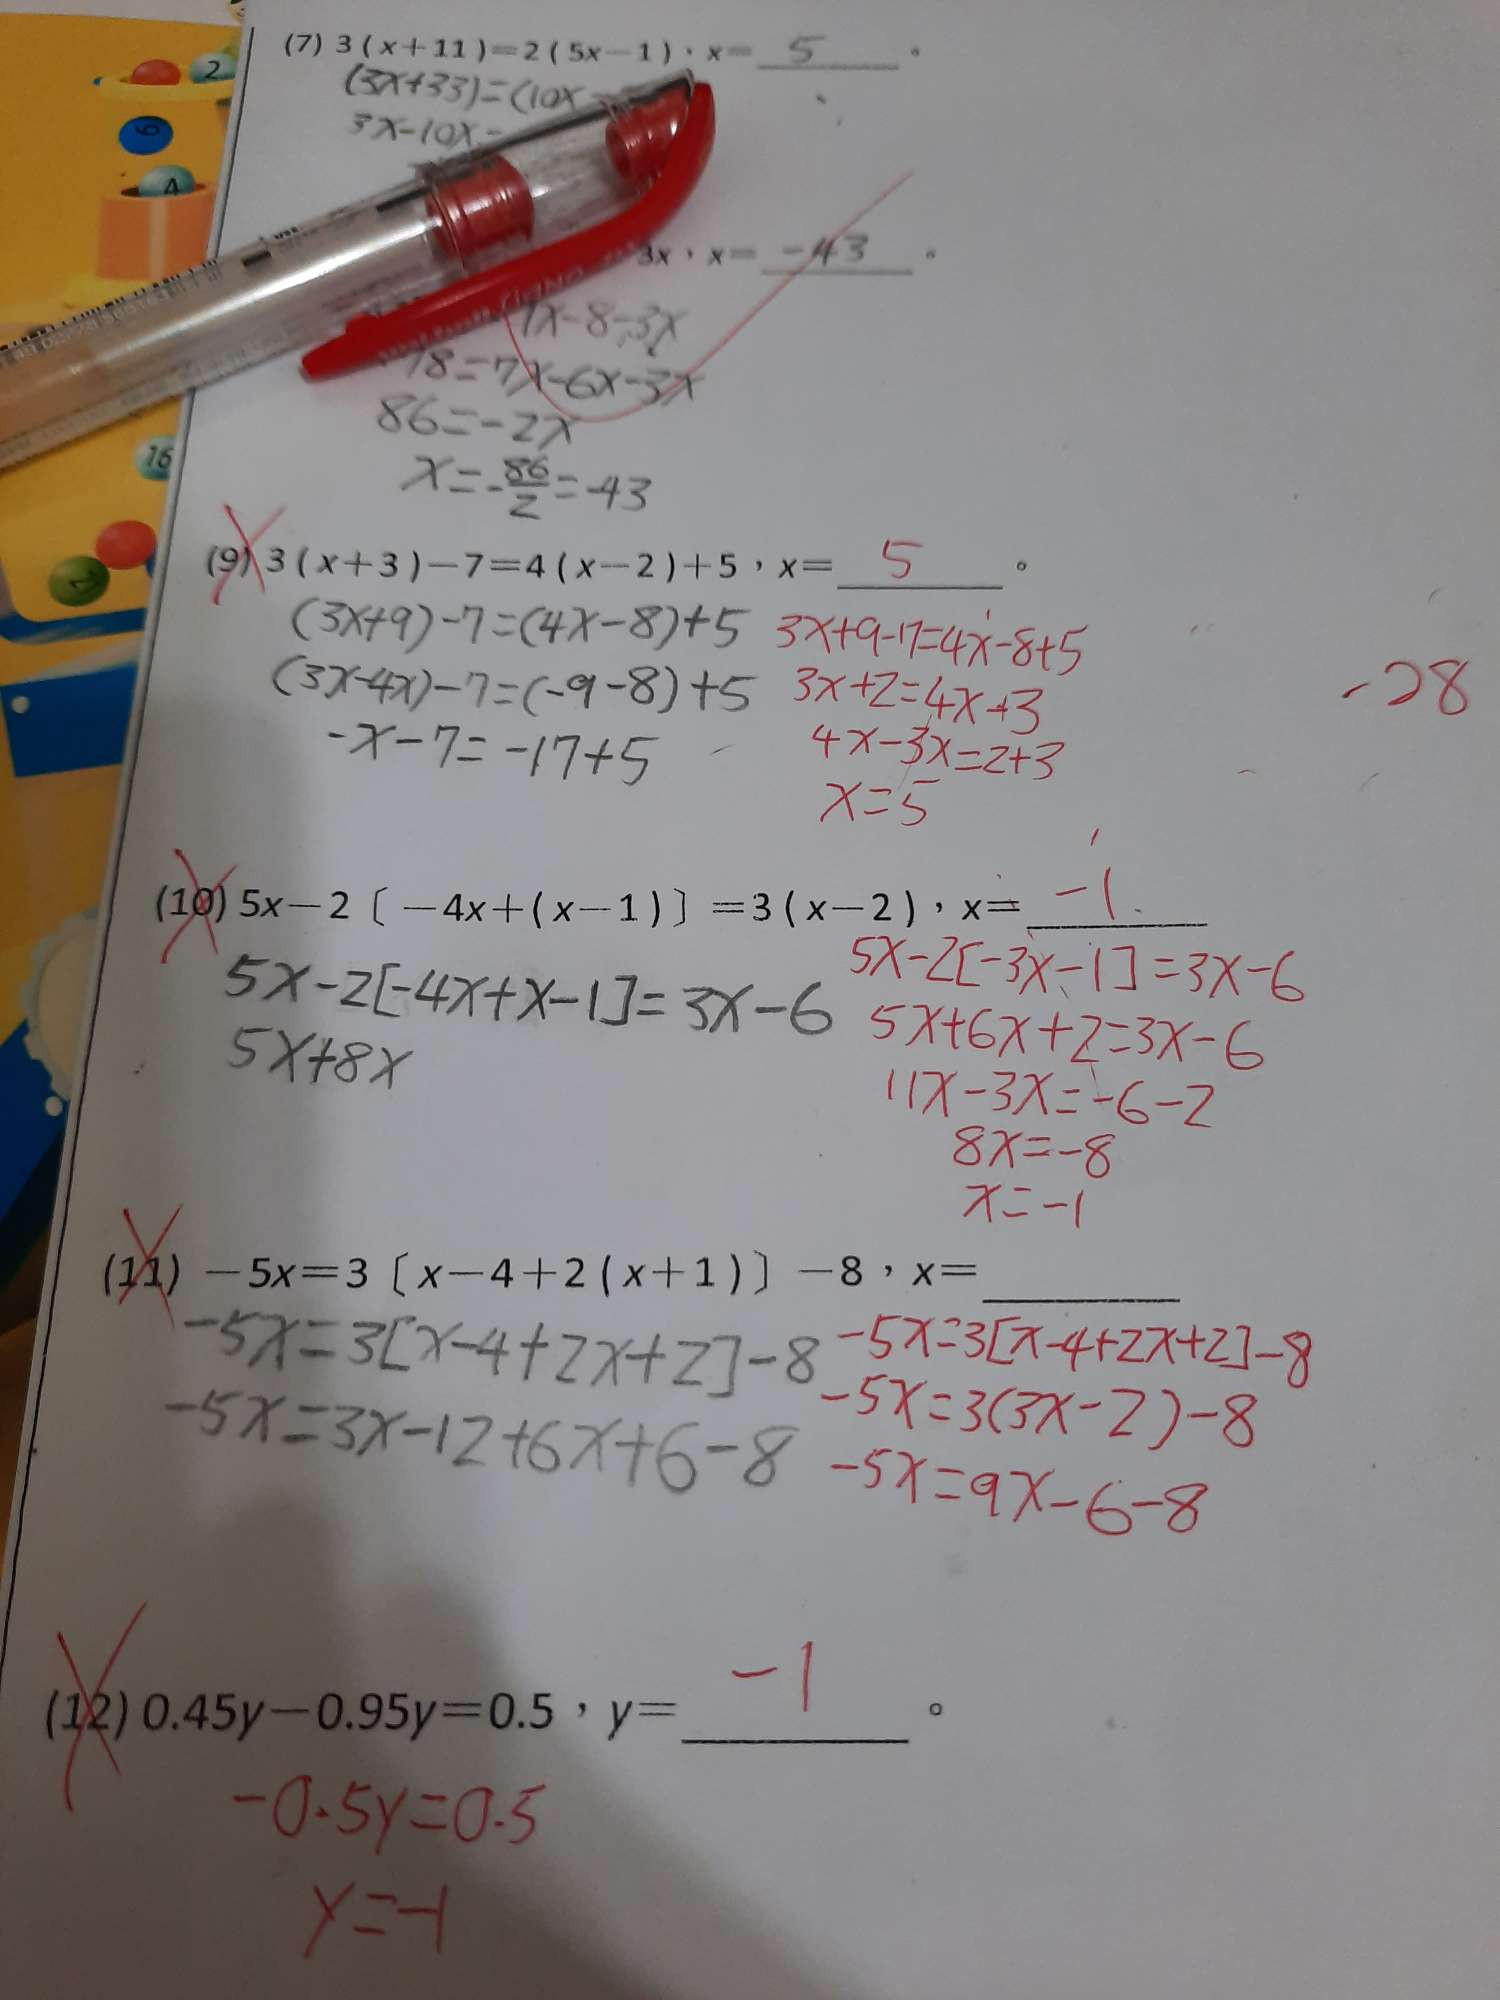 (7) 3(x+11)=2(5x-1),x= 5 。
(3x+33)=(10x
3x-10x
3x,x= -43 。
7x-8-3x
78=7x-6x-3x
86=-2x
x=-86/2=-43
(9) 3(x+3)-7=4(x-2)+5,x= 5 。
(3x+9)-7=(4x-8)+5
(3x-4x)-7=(-9-8)+5
-x-7=-17+5
3x+9-17=4x-8+5
3x+2=4x+3
4x-3x=2+3
x=5
-28
(10) 5x-2〔-4x+(x-1)〕=3(x-2),x= -1
5x-2[-4x+x-1]=3x-6
5x+8x
5x-2[-3x-1]=3x-6
5x+6x+2=3x-6
11x-3x=-6-2
8x=-8
x=-1
(11) -5x=3〔x-4+2(x+1)〕-8,x=
-5x=3[x-4+2x+2]-8
-5x=3x-12+6x+6-8
-5x=3[x-4+2x+2]-8
-5x=3(3x-2)-8
-5x=9x-6-8
(12) 0.45y-0.95y=0.5,y= -1 。
-0.5y=0.5
y=-1